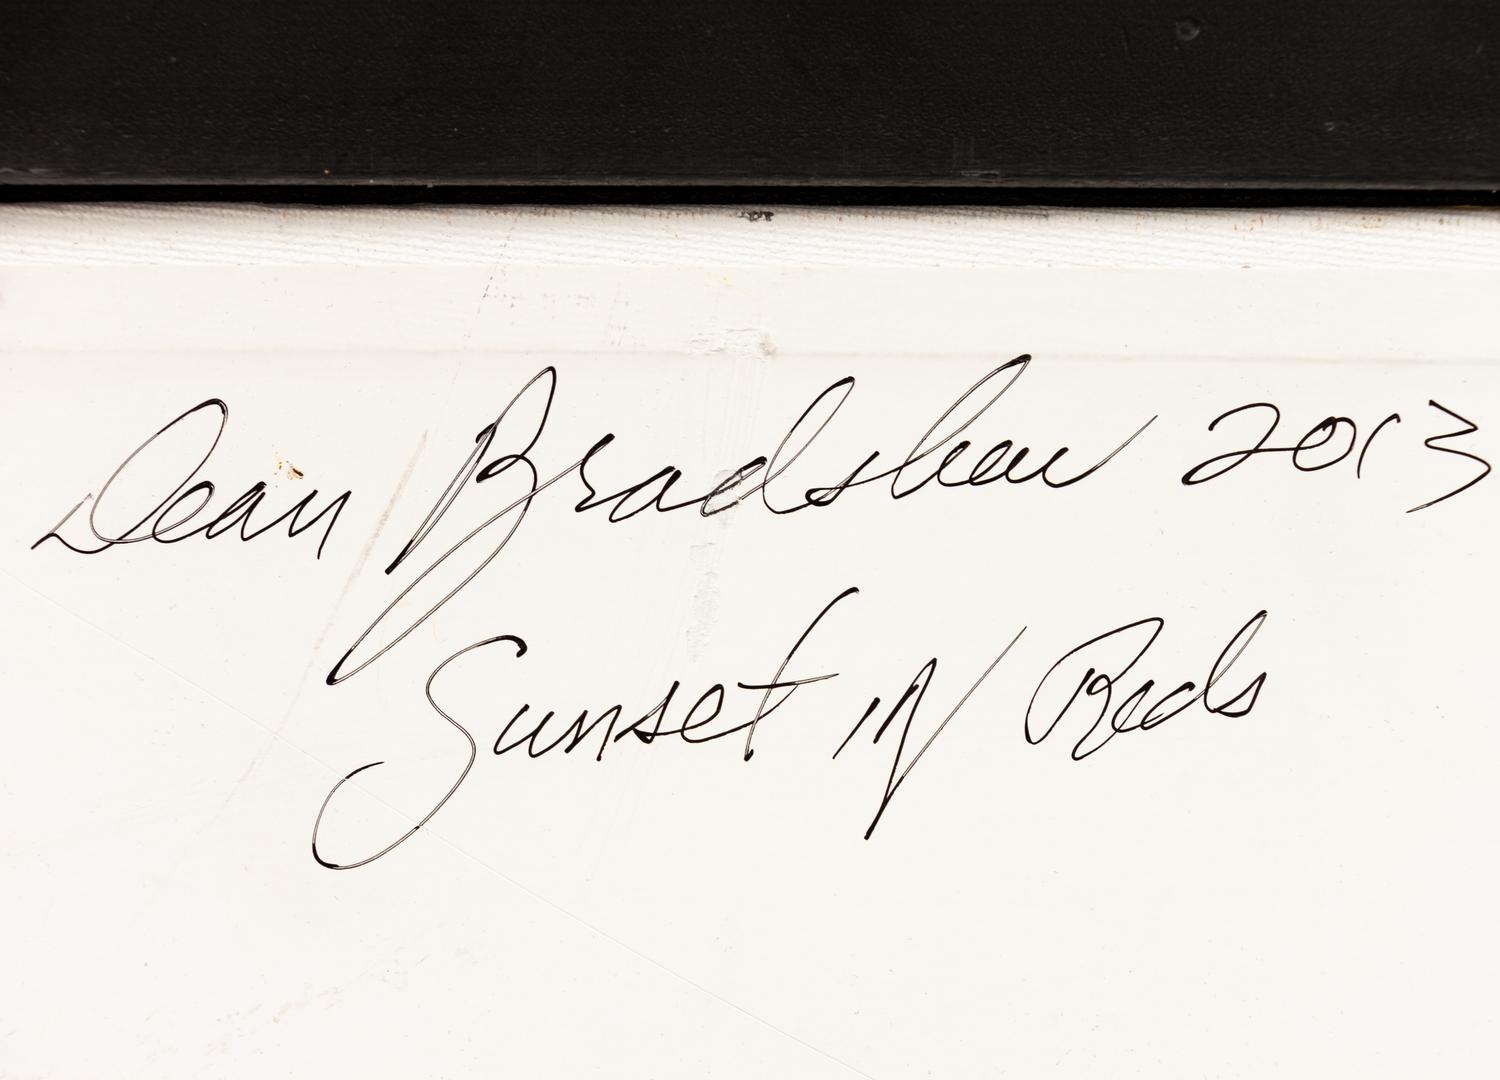 Dean Bradshaw 2013
Sunset in Reds